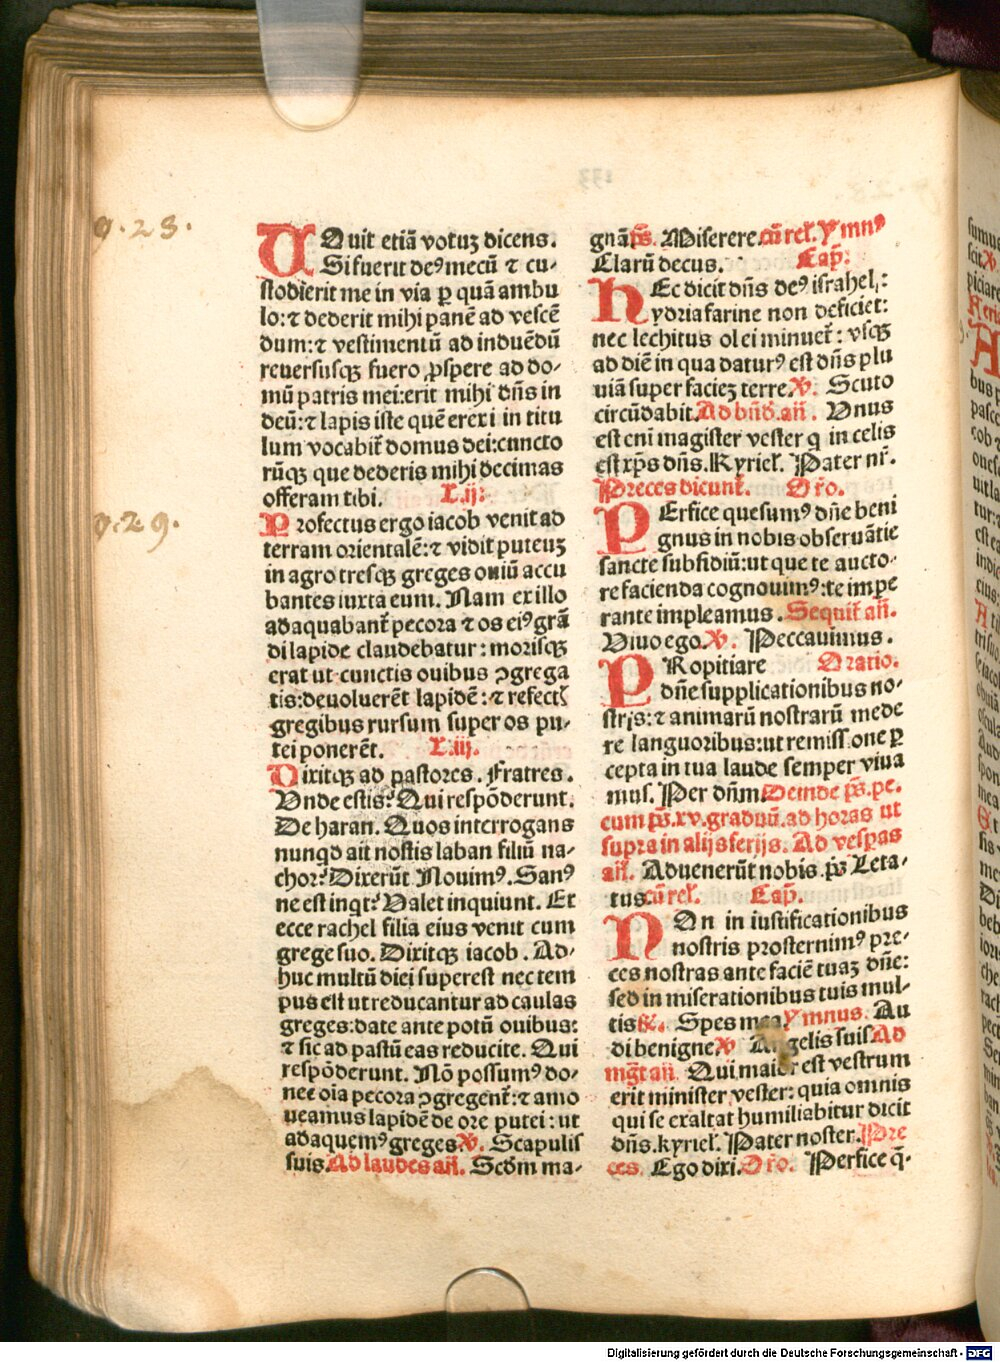 g. 28.
g. 29.
VOuit etiā votuꝫ dicens.
Si fuerit deꝰ mecū ⁊ cu-
stodierit me in via ꝑ quā ambu
lo: ⁊ dederit mihi panē ad vescē
dum: ⁊ vestimentū ad induēdū
reuersusqꝫ fuero ꝓspere ad do-
mū patris mei: erit mihi dn̄s in
deū: ⁊ lapis iste quē erexi in titu
lum vocabit̄ domus dei: cuncto
rūqꝫ que dederis mihi decimas
offeram tibi. L. ij:
Profectus ergo iacob venit ad
terram orientalē: ⁊ vidit puteuꝫ
in agro tresqꝫ greges ouiū accu
bantes iuxta eum. Nam ex illo
adaquabant̄ pecora ⁊ os eiꝰ grā
di lapide claudebatur: morisqꝫ
erat ut cunctis ouibus ↄgrega
tis: deuoluerēt lapidē: ⁊ refectꝭ
gregibus rursum super os pu-
tei ponerēt. L. iij.
Dixitqꝫ ad pastores. Fratres.
Vnde estis? Qui respōderunt.
De haran. Quos interrogans
nunqd ait nostis laban filiū na-
chor? Dixerūt Nouimꝰ. Sanꝰ
ne est inqt? Valet inquiunt. Et
ecce rachel filia eius venit cum
grege suo. Dixitqꝫ iacob. Ad-
huc multū diei superest nec tem
pus est ut reducantur ad caulas
greges: date ante potū ouibus:
⁊ sic ad pastū eas reducite. Qui
respōderunt. Nō possumꝰ do-
nec oīa pecora ↄgregent̄: ⁊ amo
ueamus lapidē de ore putei: ut
adaquemꝰ greges ℣. Scapulis
suis. Ad laudes an̄. Scd̄m ma-
gnā ps̄. Miserere. cū rel̄. Ymnꝰ
Clarū decus. Cap̄:
HEc dicit dn̄s deꝰ israhel:
ydria farine non deficiet:
nec lechitus olei minuet̄: vsqꝫ
ad diē in qua daturꝰ est dn̄s plu
uiā super facieꝫ terre ℣. Scuto
circūdabit. Ad bn̄d̄. an̄. Vnus
est eni magister vester q in celis
est xp̄s dn̄s. Kyriel̄. Pater nr̄.
Preces dicunt̄. Or̄o.
PErfice quesumꝰ dn̄e beni
gnus in nobis obseruātie
sancte subsidiū: ut que te aucto-
re facienda cognouimꝰ: te impe
rante impleamus. Sequit̄ an̄.
Viuo ego. ℣. Peccauimus.
PRopitiare Oratio.
dn̄e supplicationibus no-
stris: ⁊ animarū nostrarū mede
re languoribus: ut remissione ꝑ
cepta in tua laude semper viua
mus. Per dn̄m Deinde ps̄. pe.
cum ps̄. xv. graduū. ad horas ut
supra in alijs ferijs. Ad vesꝑas
an̄. Aduenerūt nobis. ps̄ Leta-
tus. cū rel̄. Cap̄.
NOn in iustificationibus
nostris prosternimꝰ pre-
ces nostras ante faciē tuaꝫ dn̄e:
sed in miserationibus tuis mul-
tis ℟. Spes mea Ymnus. Au
di benigne ℣ Angelis suis Ad
mgt̄ an̄. Qui maior est vestrum
erit minister vester: quia omnis
qui se exaltat humiliabitur dicit
dn̄s. kyriel̄. Pater noster. Pre
ces. Ego dixi. Or̄o. Perfice q̄-
Digitalisierung gefördert durch die Deutsche Forschungsgemeinschaft - DFG